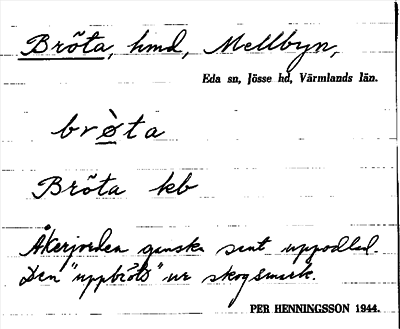 Brõta, hmd, Mellbyn,
Eda sn, Jösse hd, Värmlands län.
brø̀ta
Brõta kb
Åkerjorden ganska sent uppodlad.
Den "uppbröts" ur skogsmark.
PER HENNINGSSON 1944.